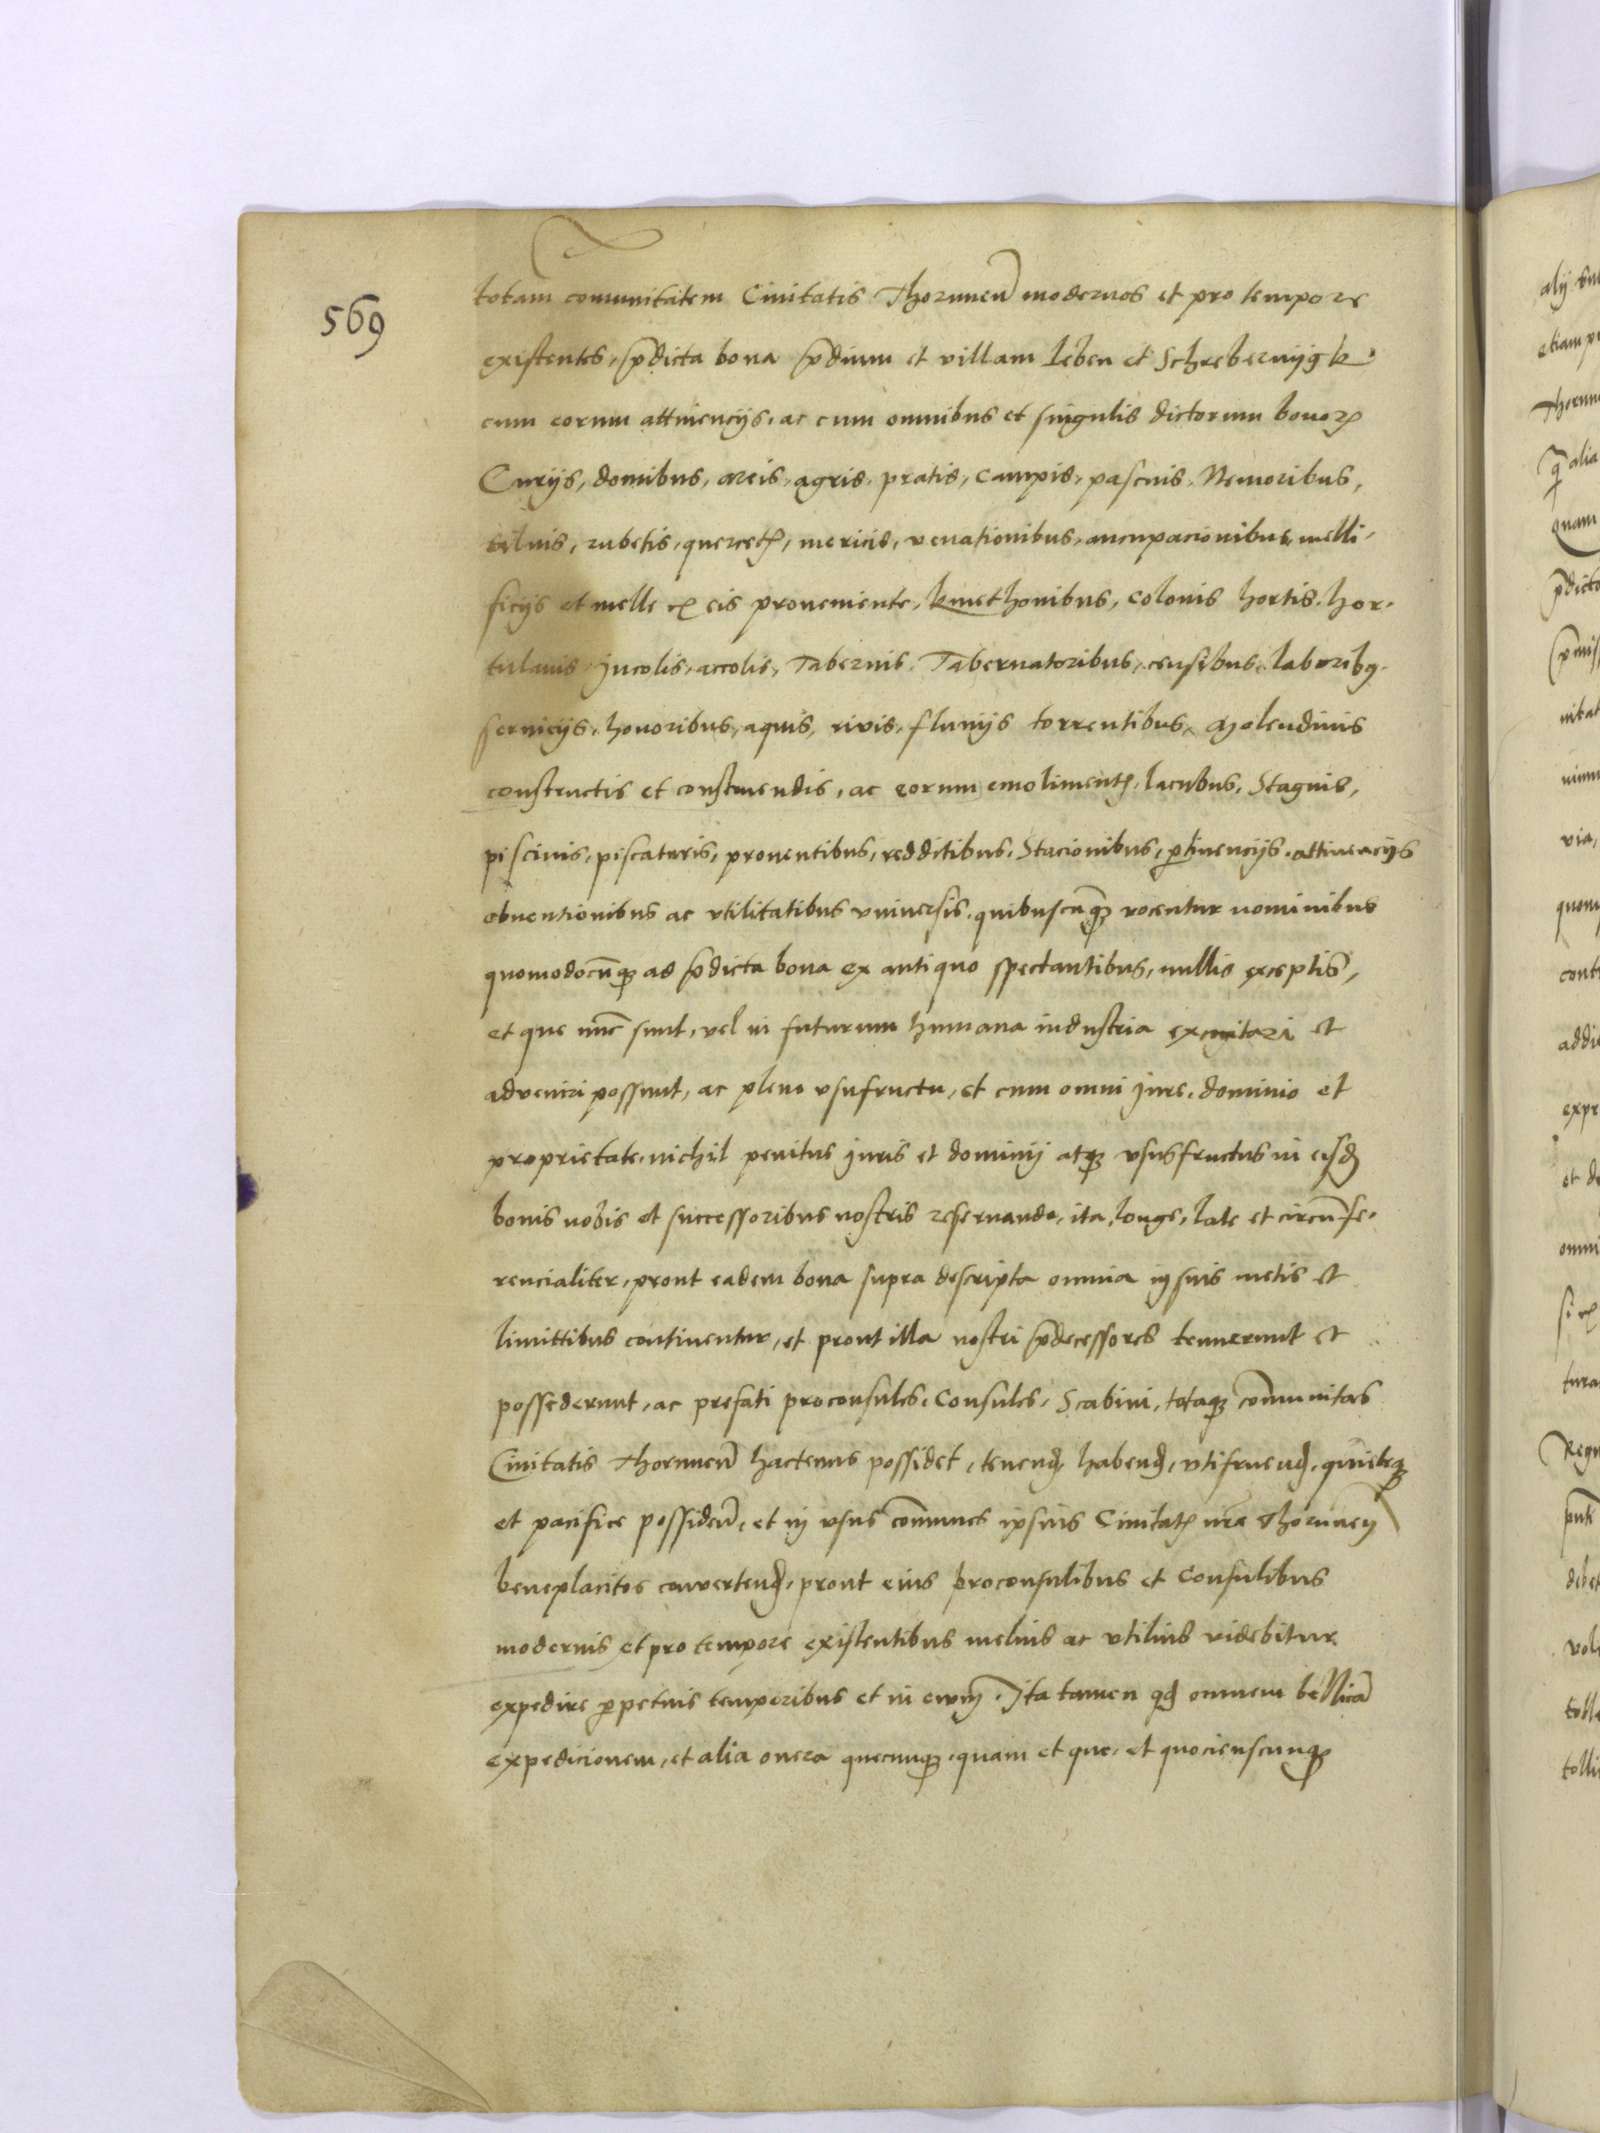 569
totam comunitatem Ciuitatis Thorunen̄ modernos et pro tempore
existentes, p̄dicta bona p̄dium et villam Leben et Schrebernijgk.
cum eorum attinencijs, ac cum omnibus et singulis dictorum bonoꝝ
Curijs, domibus, areis, agris, pratis, campis, pascuis, Nemoribus,
siluis, rubetis, quercetꝭ, mericis, venationibus, aucupacionibus, melli-
ficijs et melle ex eis proueniente, kmethonibus, colonis hortis, hor-
tulanis, Incolis, accolis, Tabernis, Tabernatoribus, censibus, laboribꝯ,
seruicijs, honoribus, aquis, riuis, fluuijs torrentibus, Molendinis
constructis et construendis, ac eorum emolimentꝭ, lacubus, Stagnis,
piscinis, piscaturis, prouentibus, redditibus, Stacionibus, ꝑtinencijs, attinencijs
obuentionibus ac vtilitatibus vniuersis, quibuscūqꝫ vocentur nominibus
quomodocūqꝫ ad p̄dicta bona ex antiquo spectantibus, nullis exceptis,
et que nūc sunt, vel in futurum humana industria excogitari et
adveniri possunt, ac pleno vsufructu, et cum omni Jure, dominio et
proprietate, nichil penitus Juris et dominij atqꝫ vsusfructus in eisd̄
bonis nobis et successoribus nostris reseruando, ita, longe, late et circūfe-
rencialiter, prout eadem bona supra descripta omnia in suis metis et
limittibus continentur, et prout illa nostri p̄decessores tenuerunt et
possederunt, ac prefati proconsules, Consules, Scabini, totaqꝫ cōmunitas
Ciuitatis Thorunen̄ hactenus possidet, tenend̄, habend̄, vtifruend̄, quieteqꝫ
et pacifice possiden̄, et in vsus cōmunes ipsius Ciuitatꝭ nr̄e Thorunen̄
beneplacitos conuertend̄, prout eius proconsulibus et Consulibus
modernis et pro tempore existentibus melius ac vtilius videbitur
expedire ꝑpetuis temporibus et in euum̄. Ita tamen qd̄ omnem bellicā
expedicionem, et alia onera quecunqꝫ, quam et que, et quocienscunqꝫ